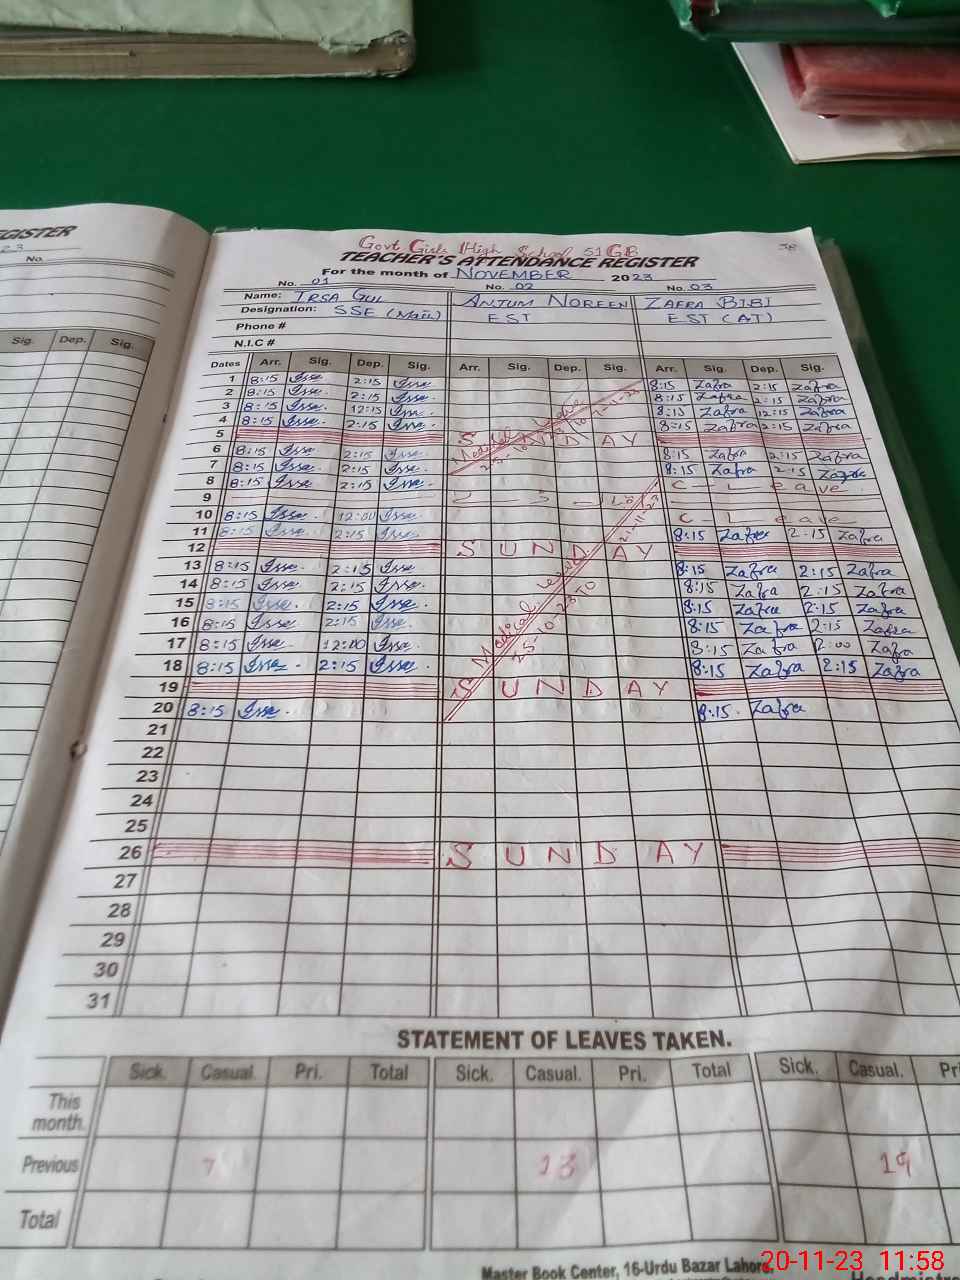 GISTER
23
No.
Sig. Dep. Sig.
Govt Girls High School 51 GB
38
TEACHER'S ATTENDANCE REGISTER
For the month of NOVEMBER 2023
No. 01 No. 02 No. 03
Name: IRSA GUL ANJUM NOREEN ZAFRA BIBI
Designation: SSE (Math) EST EST (AT)
Phone #
N.I.C #
Dates Arr. Sig. Dep. Sig. Arr. Sig. Dep. Sig. Arr. Sig. Dep. Sig.
1 8:15 2:15 8:15 Zafra 2:15 Zafra
2 8:15 2:15 8:15 Zafra 2:15 Zafra
3 8:15 12:15 8:15 Zafra 12:15 Zafra
4 8:15 2:15 8:15 Zafra 2:15 Zafra
5 SUNDAY
6 8:15 2:15 8:15 Zafra 2:15 Zafra
7 8:15 2:15 8:15 Zafra 2:15 Zafra
8 8:15 2:15 C-leave
9
10 8:15 12:00 C-leave
11 8:15 2:15 8:15 Zafra 2:15 Zafra
12 SUNDAY
13 8:15 2:15 8:15 Zafra 2:15 Zafra
14 8:15 2:15 8:15 Zafra 2:15 Zafra
15 8:15 2:15 8:15 Zafra 2:15 Zafra
16 8:15 2:15 8:15 Zafra 2:15 Zafra
17 8:15 12:00 8:15 Zafra 2:00 Zafra
18 8:15 2:15 8:15 Zafra 2:15 Zafra
19 SUNDAY
20 8:15 8:15 Zafra
21
22
23
24
25
26 SUNDAY
27
28
29
30
31
Medical leave
25-10-23 TO
STATEMENT OF LEAVES TAKEN.
Sick. Casual. Pri. Total Sick. Casual. Pri. Total Sick. Casual. Pri
This month.
Previous 7 13 19
Total
Master Book Center, 16-Urdu Bazar Lahore,
20-11-23 11:58